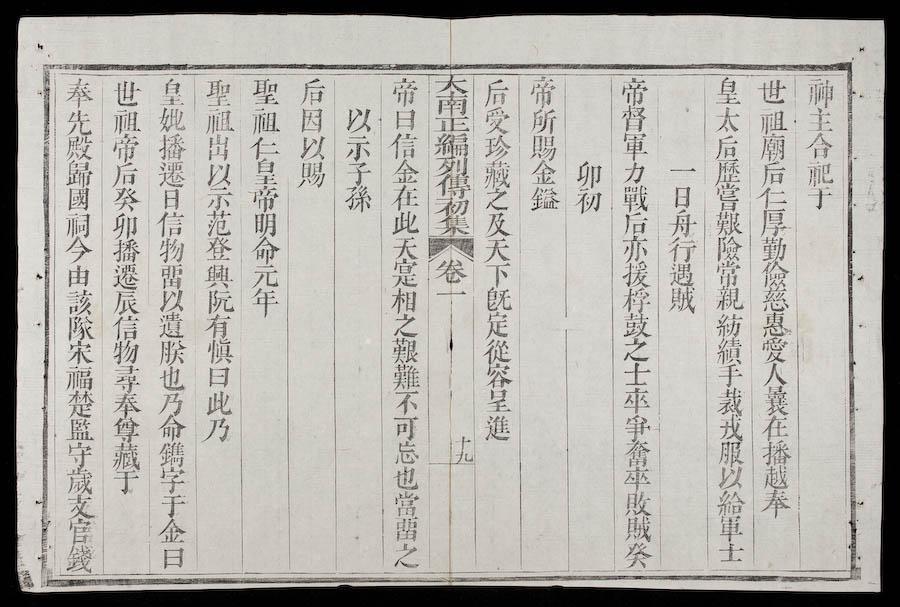 神主合祀于
世祖廟后仁厚勤儉慈惠愛人曩在播越奉
皇太后歷嘗艱險常親紡績手裁戎服以給軍士
一日舟行遇賊
帝督軍力戰后亦援桴鼓之士卒爭奮卒敗賊癸
卯初
帝所賜金鎰
后受珍藏之及天下旣定從容呈進
大南正編列傳初集
卷一
十九
帝曰信金在此天寔相之艱難不可忘也當畱之
以示子孫
后因以賜
聖祖仁皇帝明命元年
聖祖出以示范登興阮有愼曰此乃
皇妣播遷日信物畱以遺朕也乃命鐫字于金曰
世祖帝后癸卯播遷辰信物尋奉尊藏于
奉先殿歸國祠今由該隊宋福楚監守歲支官錢